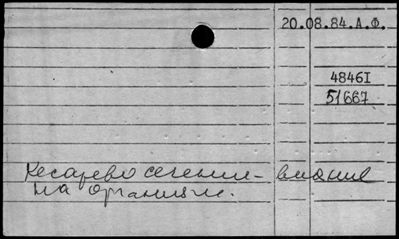 20.08.84.А.Ф.
48461
51667
Кесарево сечение - влияние
на организм.